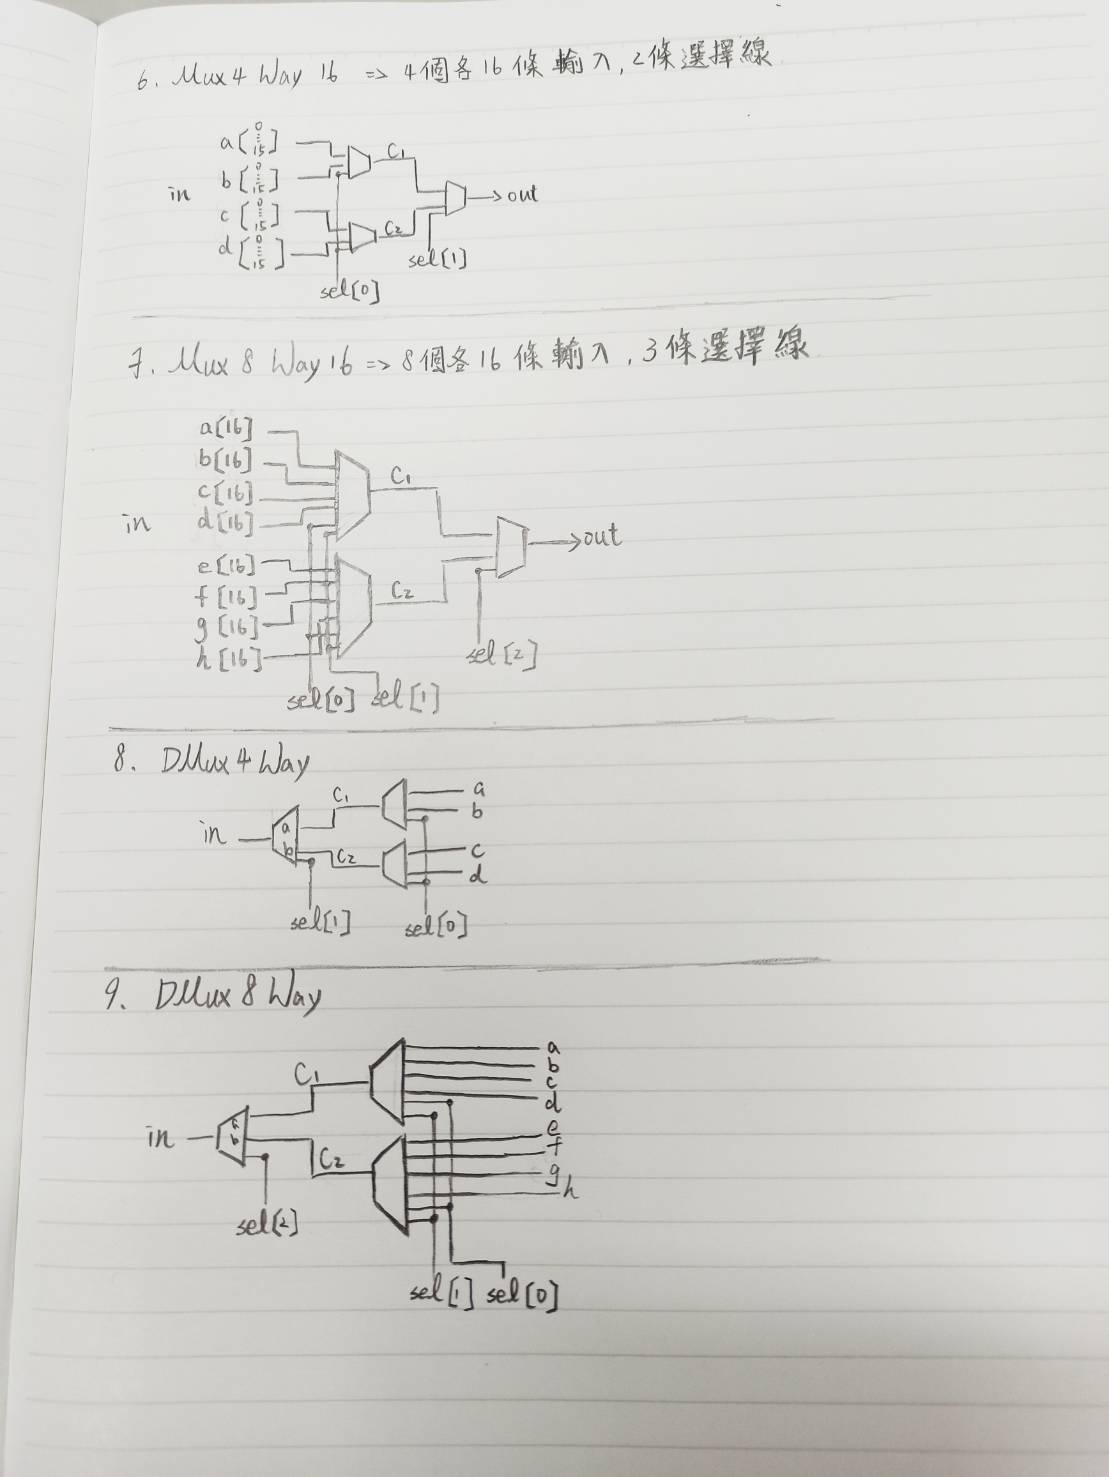 6. Mux 4 Way 16 => 4個各16條輸入,2條選擇線
a[0...15]
b[0...15]
in
c[0...15]
d[0...15]
C1
C2
out
sel[1]
sel[0]
7. Mux 8 Way 16 => 8個各16條輸入,3條選擇線
a[16]
b[16]
c[16]
d[16]
in
e[16]
f[16]
g[16]
h[16]
C1
C2
out
sel[2]
sel[0] sel[1]
8. DMux 4 Way
in
a
b
C1
C2
a
b
c
d
sel[1] sel[0]
9. DMux 8 Way
in
a
b
C1
C2
a
b
c
d
e
f
g
h
sel[2]
sel[1] sel[0]